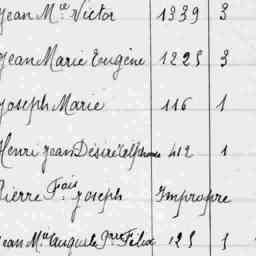 Jean M.ie Victor 1339 3
Jean Marie Eugène 1225 3
Joseph Marie 116 1
Henri Jean Désiré Alphonse 412 1
Pierre F.ois Joseph Impropre
Jean M.ie Auguste P.rre Félix 125